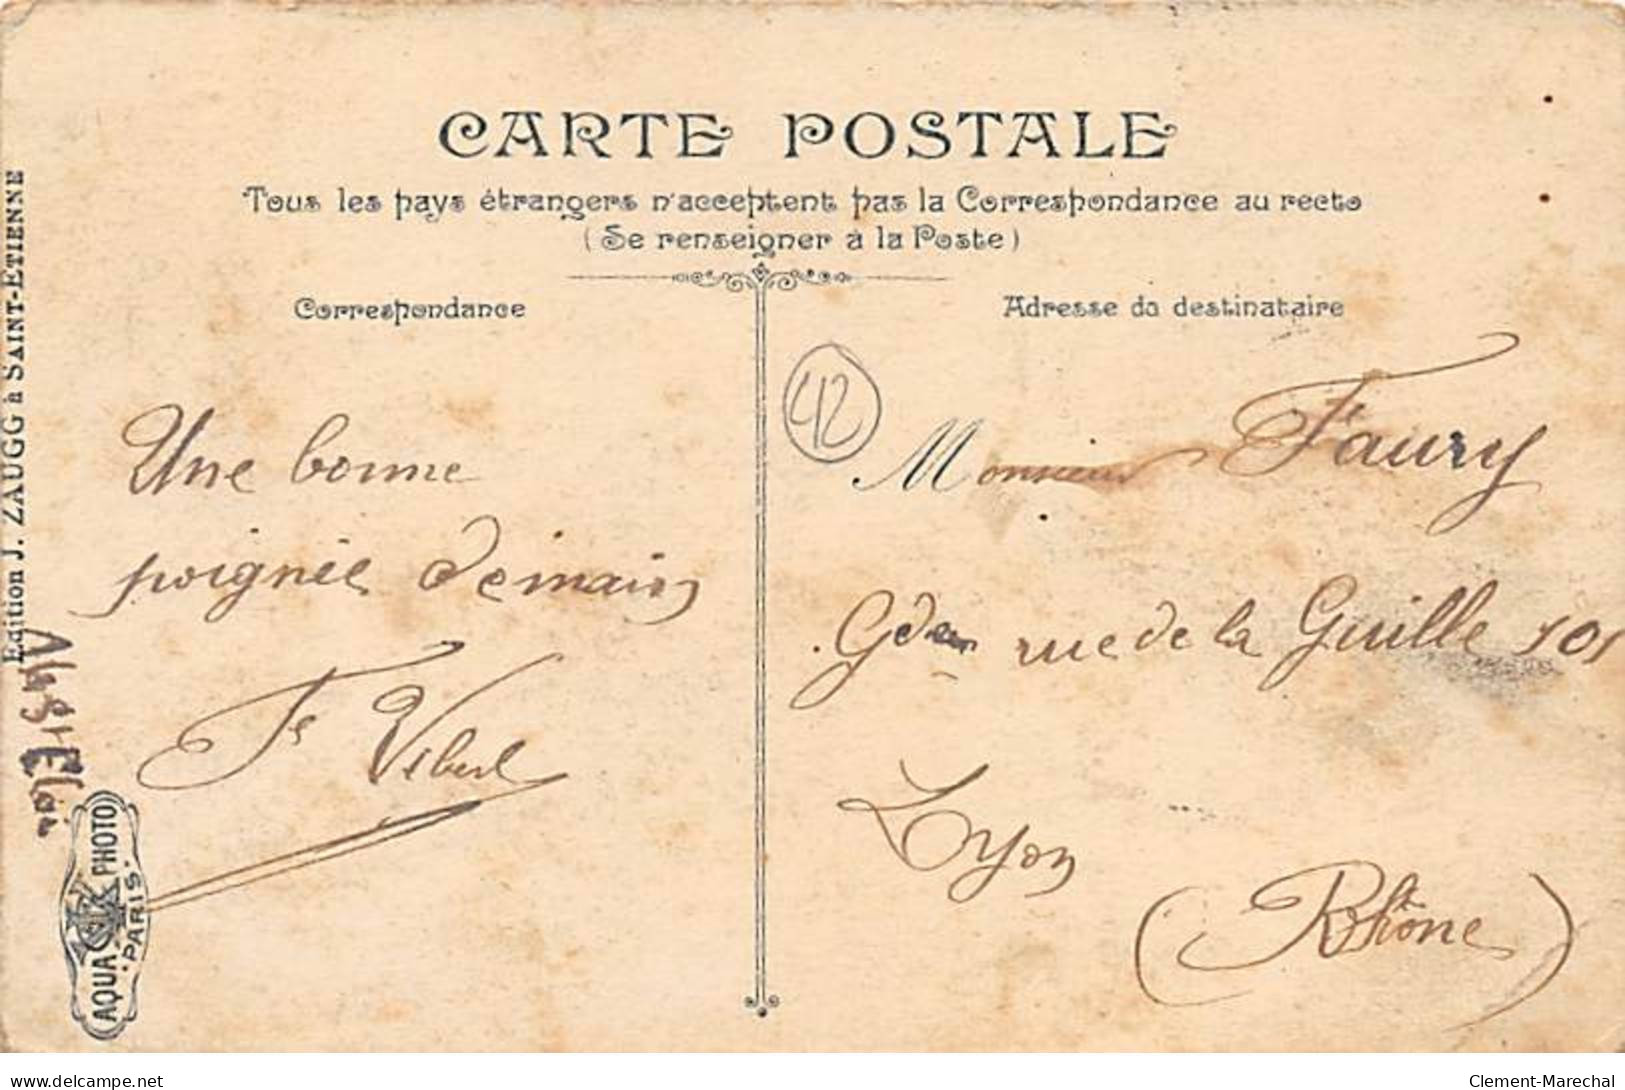 CARTE POSTALE
Tous les pays étrangers n'acceptent pas la Correspondance au recto
(Se renseigner à la Poste)
Correspondance
Adresse du destinataire
Edition J. ZAUGG à SAINT-ETIENNE
Une bonne
poignée de main
Vibert
AQUA PHOTO
PARIS
42
Monsieur Faury
Gde rue de la Guille 101
Lyon
(Rhône)
delcampe.net
Clement-Marechal